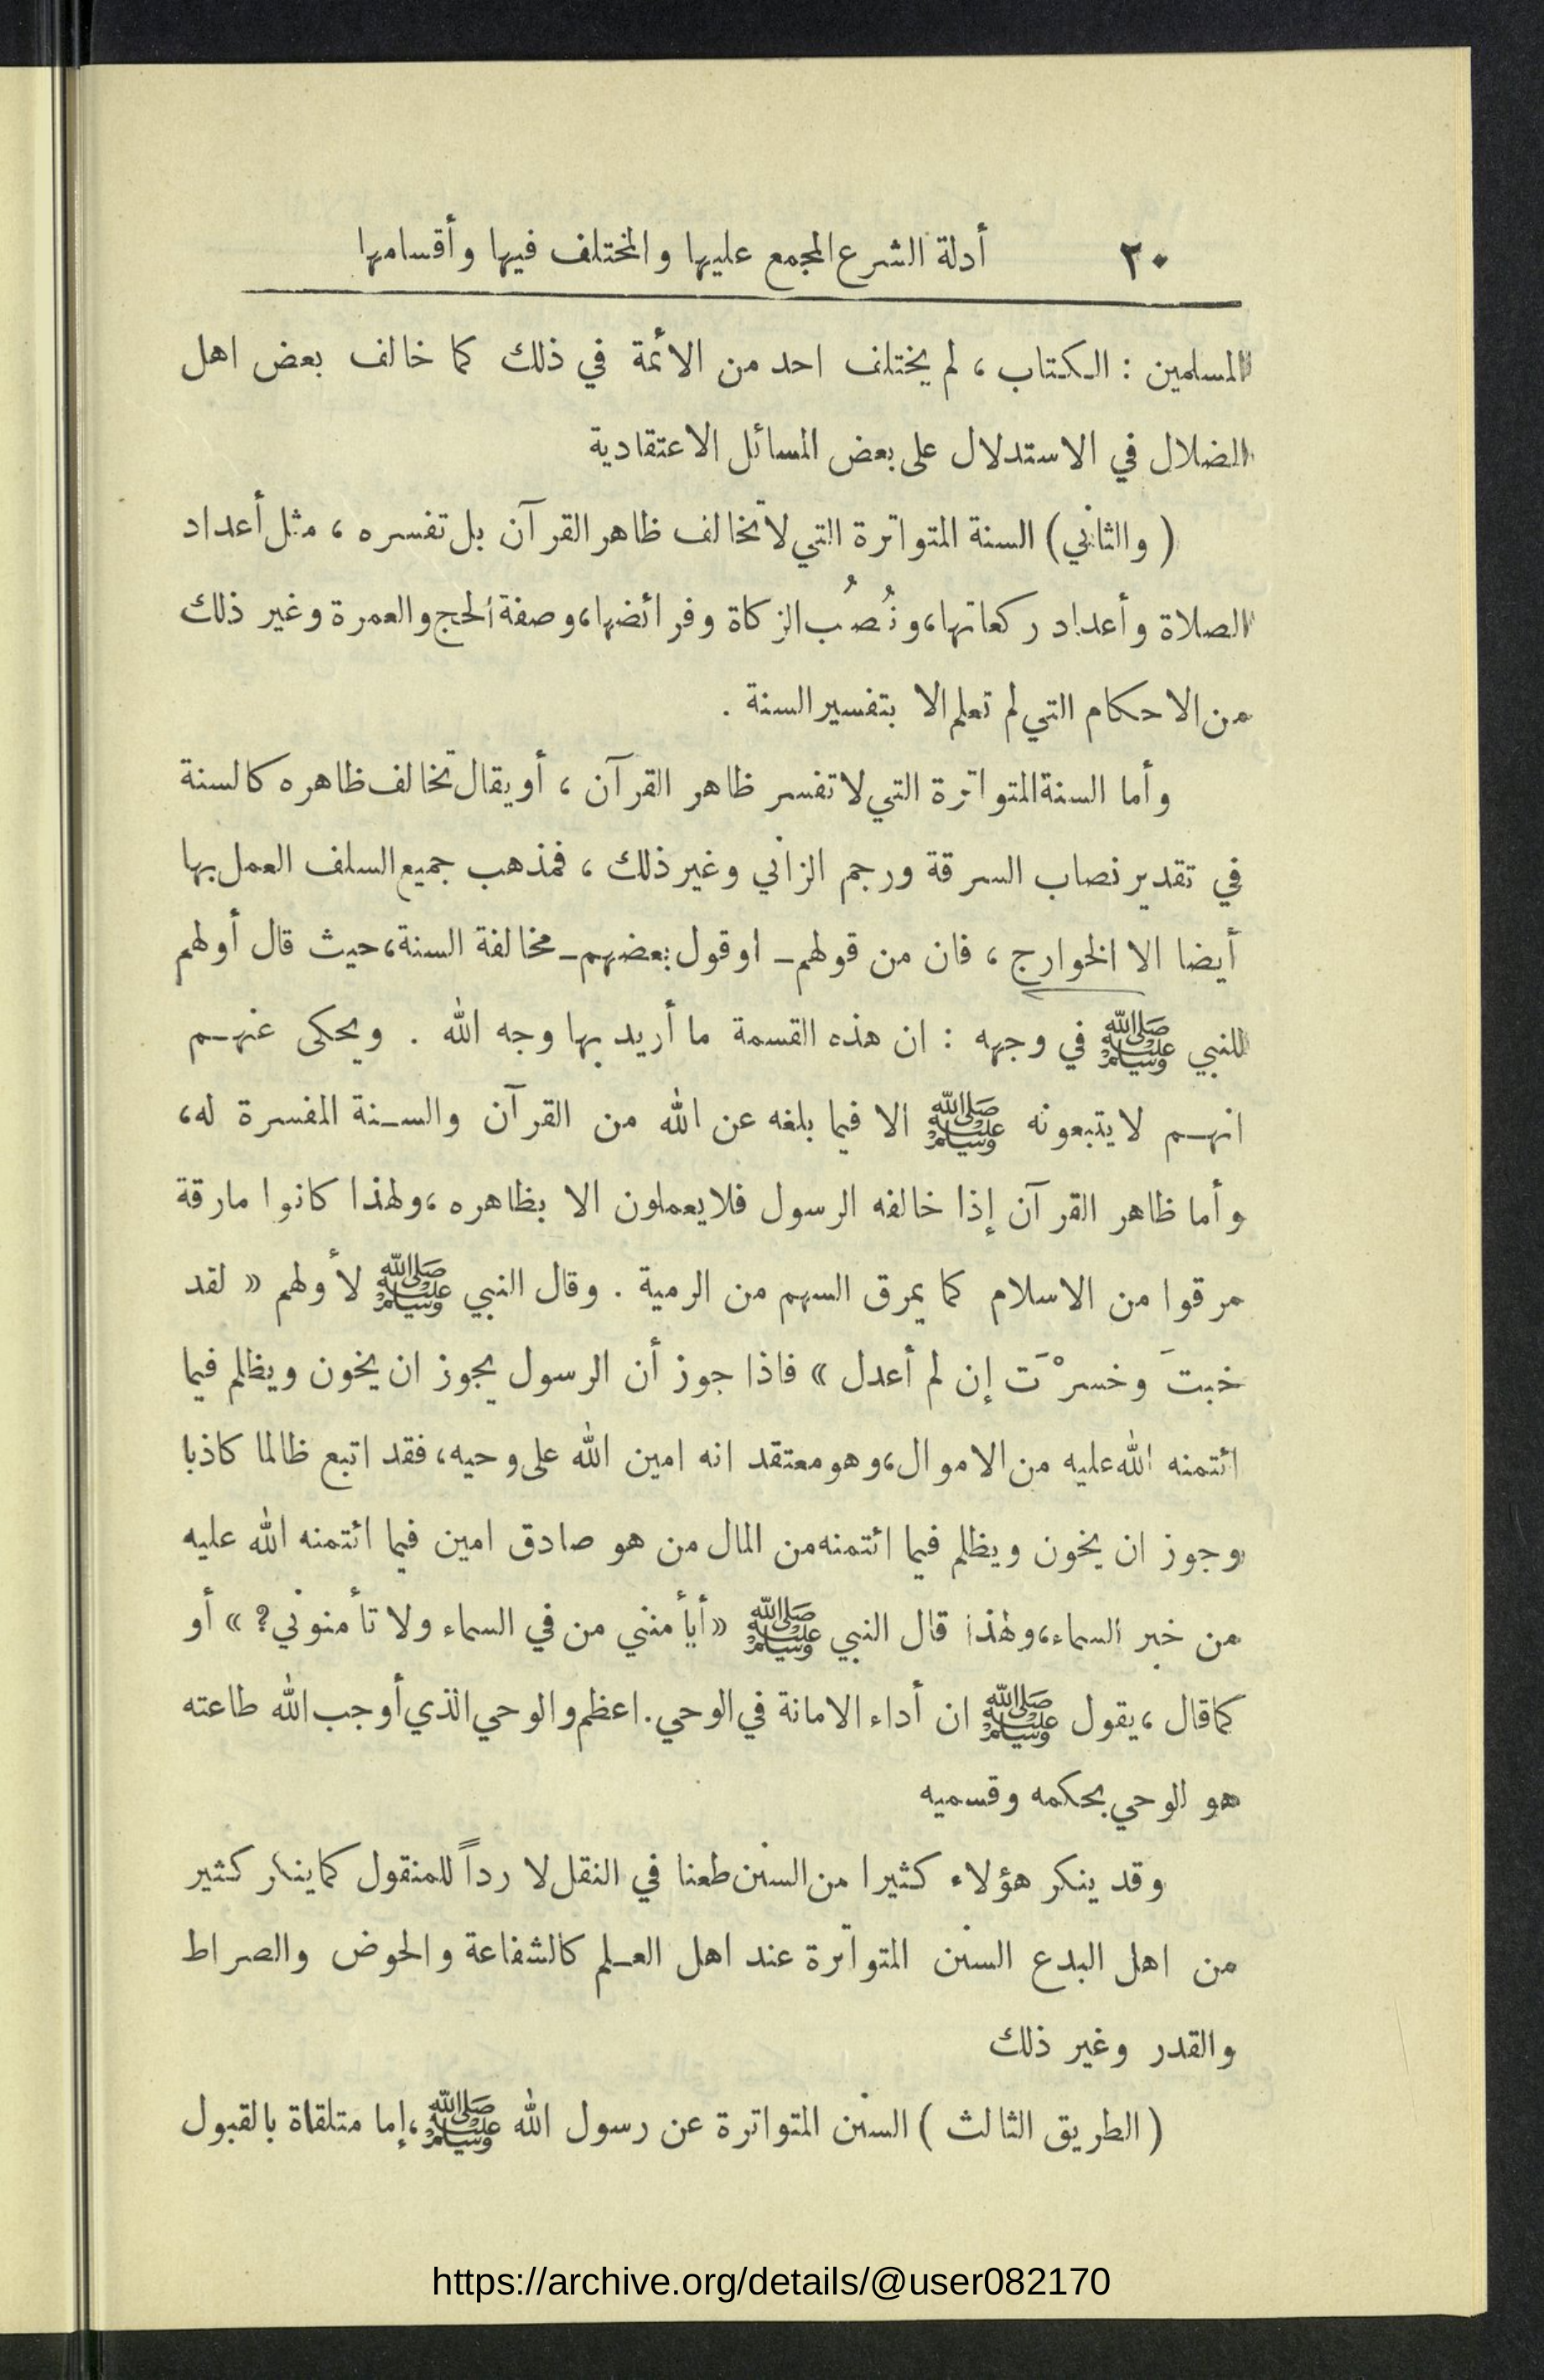 ٢٠ أدلة الشرع المجمع عليها والمختلف فيها وأقسامها
المسلمين : الكتاب ، لم يختلف احد من الائمة في ذلك كما خالف بعض اهل
الضلال في الاستدلال على بعض المسائل الاعتقادية
( والثاني ) السنة المتواترة التي لا تخالف ظاهر القرآن بل تفسره ، مثل أعداد
الصلاة وأعداد ركعاتها ، ونُصُب الزكاة وفرائضها ، وصفة الحج والعمرة وغير ذلك
من الاحكام التي لم تعلم الا بتفسير السنة .
وأما السنة المتواترة التي لا تفسر ظاهر القرآن ، أو يقال تخالف ظاهره كالسنة
في تقدير نصاب السرقة ورجم الزاني وغير ذلك ، فمذهب جميع السلف العمل بها
أيضا الا الخوارج ، فان من قولهم ـ او قول بعضهم ـ مخالفة السنة ، حيث قال أولهم
للنبي ﷺ في وجهه : ان هذه القسمة ما أريد بها وجه الله . ويحكى عنهم
انهم لا يتبعونه ﷺ الا فيما بلغه عن الله من القرآن والسنة المفسرة له ،
وأما ظاهر القرآن إذا خالفه الرسول فلا يعملون الا بظاهره ، ولهذا كانوا مارقة
مرقوا من الاسلام كما يمرق السهم من الرمية . وقال النبي ﷺ لأولهم « لقد
خبتَ وخسرْتَ إن لم أعدل » فاذا جوز أن الرسول يجوز ان يخون ويظلم فيما
ائتمنه الله عليه من الاموال ، وهو معتقد انه امين الله على وحيه ، فقد اتبع ظالما كاذبا
وجوز ان يخون ويظلم فيما ائتمنه من المال من هو صادق امين فيما ائتمنه الله عليه
من خبر السماء ، ولهذا قال النبي ﷺ « أيأمنني من في السماء ولا تأمنوني ؟ » أو
كما قال ، يقول ﷺ ان أداء الامانة في الوحي . اعظم والوحي الذي أوجب الله طاعته
هو الوحي بحكمه وقسميه
وقد ينكر هؤلاء كثيرا من السنن طعنا في النقل لا رداً للمنقول كما ينكر كثير
من اهل البدع السنن المتواترة عند اهل العلم كالشفاعة والحوض والصراط
والقدر وغير ذلك
( الطريق الثالث ) السنن المتواترة عن رسول الله ﷺ ، إما متلقاة بالقبول
https://archive.org/details/@user082170